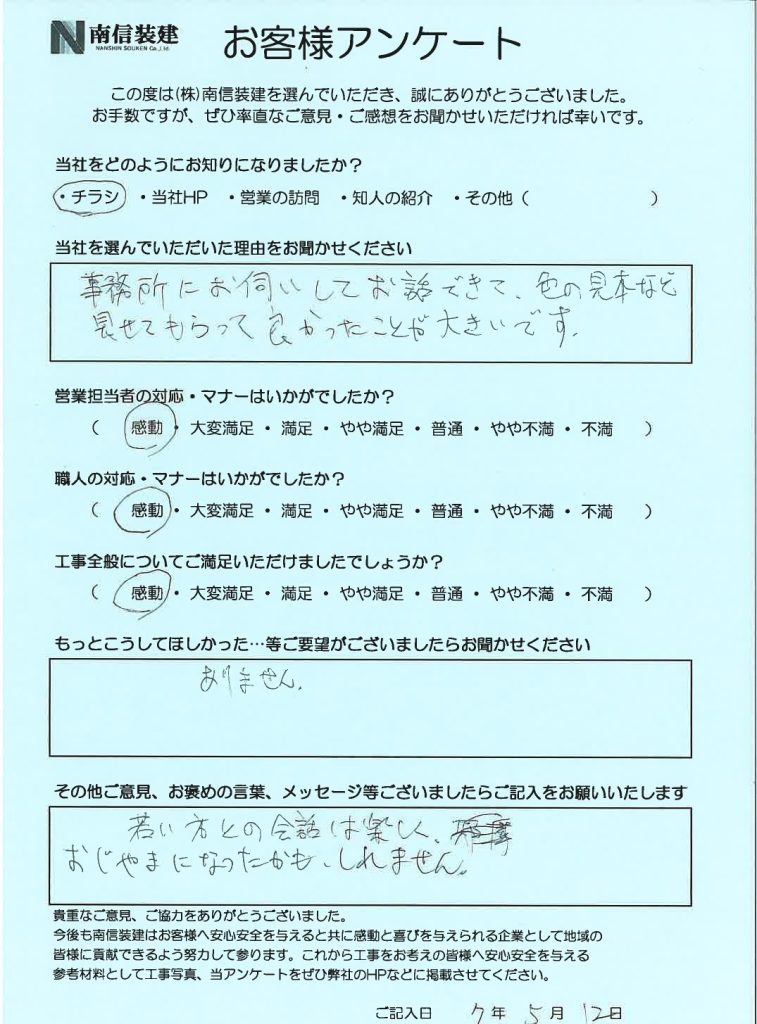 南信装建
NANSHIN SOUKEN Co.,Ltd.
お客様アンケート
この度は(株)南信装建を選んでいただき、誠にありがとうございました。
お手数ですが、ぜひ率直なご意見・ご感想をお聞かせいただければ幸いです。
当社をどのようにお知りになりましたか？
・チラシ ・当社HP ・営業の訪問 ・知人の紹介 ・その他（ ）
当社を選んでいただいた理由をお聞かせください
事務所にお伺いしてお話できて、色の見本など
見せてもらって良かったことが大きいです。
営業担当者の対応・マナーはいかがでしたか？
（ 感動・大変満足・満足・やや満足・普通・やや不満・不満 ）
職人の対応・マナーはいかがでしたか？
（ 感動・大変満足・満足・やや満足・普通・やや不満・不満 ）
工事全般についてご満足いただけましたでしょうか？
（ 感動・大変満足・満足・やや満足・普通・やや不満・不満 ）
もっとこうしてほしかった…等ご要望がございましたらお聞かせください
ありません。
その他ご意見、お褒めの言葉、メッセージ等ございましたらご記入をお願いいたします
若い方との会話は楽しく、
おじゃまになったかも、しれません。
貴重なご意見、ご協力をありがとうございました。
今後も南信装建はお客様へ安心安全を与えると共に感動と喜びを与えられる企業として地域の
皆様に貢献できるよう努力して参ります。これから工事をお考えの皆様へ安心安全を与える
参考材料として工事写真、当アンケートをぜひ弊社のHPなどに掲載させてください。
ご記入日 7年 5月 12日